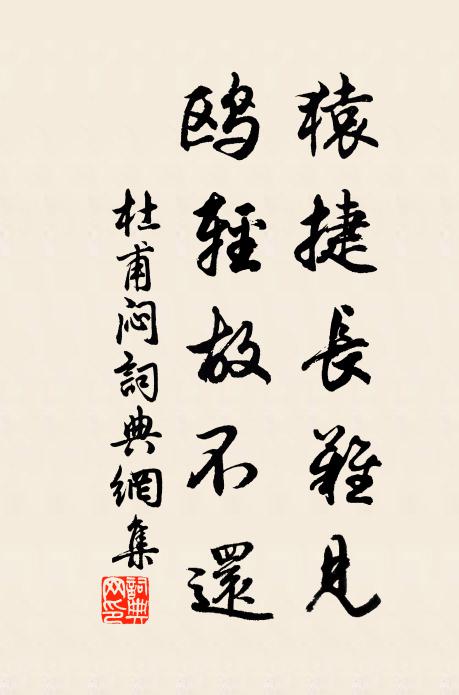 猿捷長難見
鸥輕故不還
杜甫闷詞典網集
詞典网印